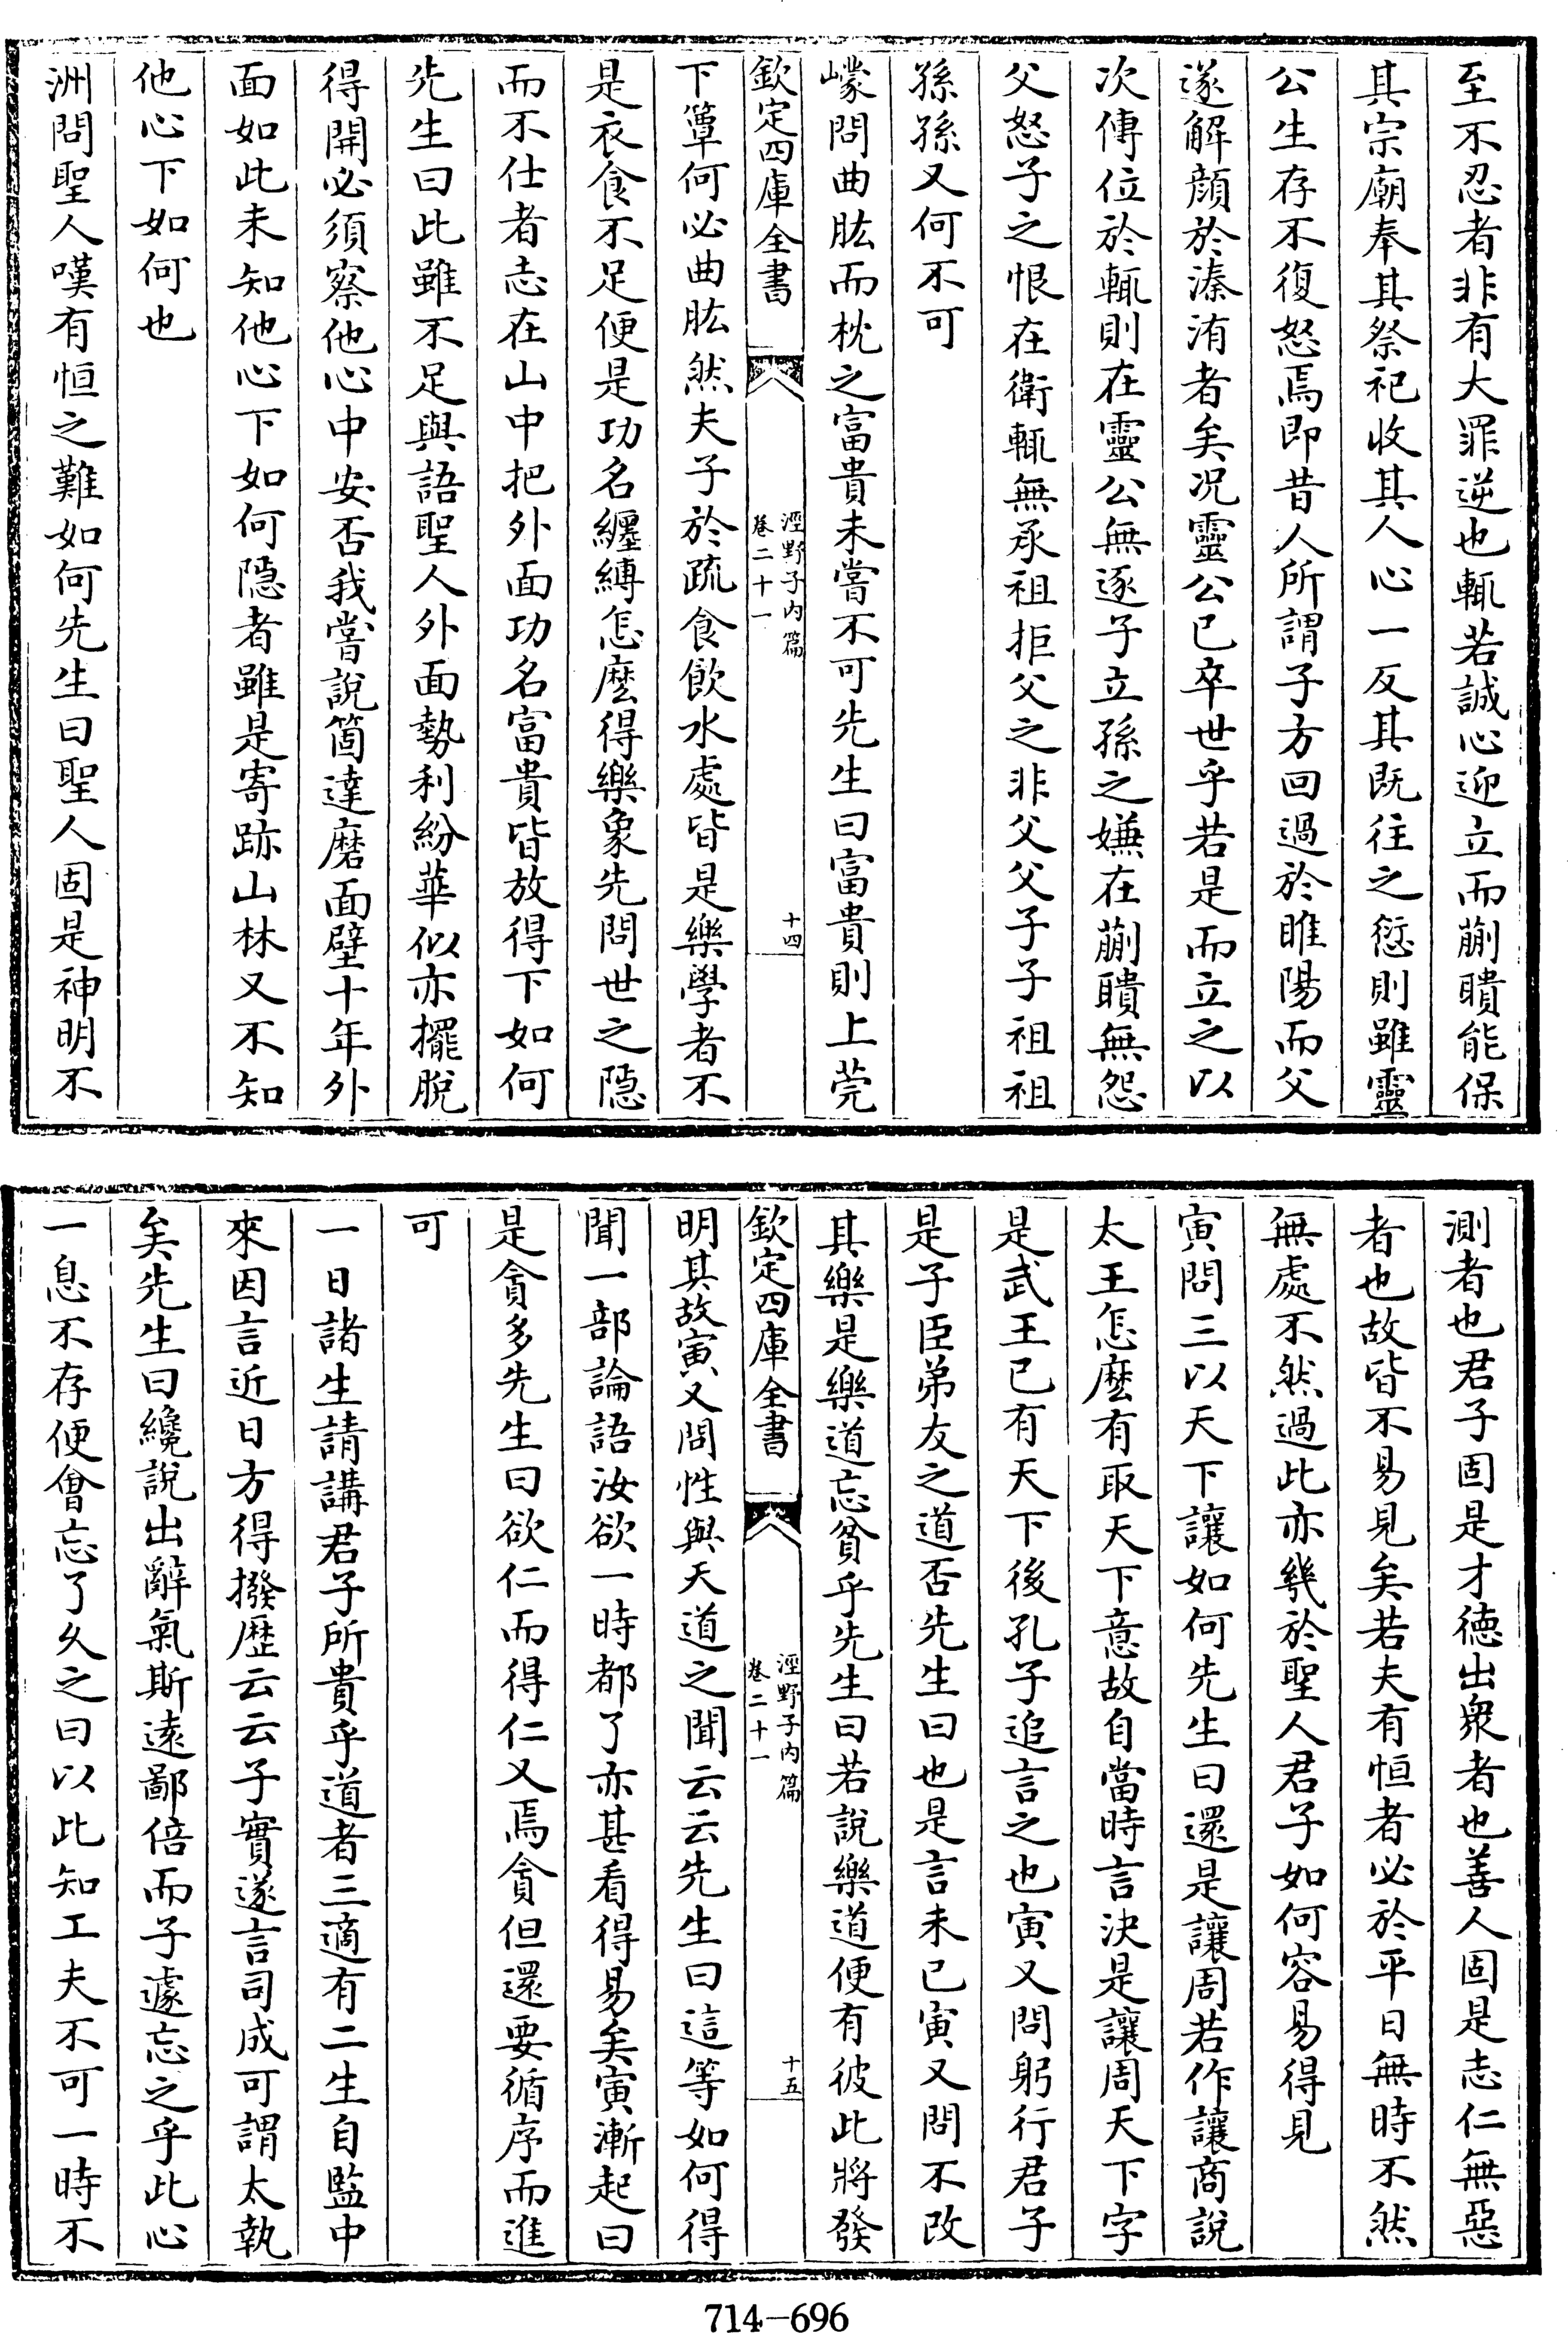 至不忍者非有大罪逆也輒若誠心迎立而蒯聵能保
其宗廟奉其祭祀收其人心一反其既往之愆則雖靈
公生存不復怒焉即昔人所謂子方回過於睢陽而父
遂解顔於溱洧者矣况靈公已卒世乎若是而立之以
次傳位於輒則在靈公無逐子立孫之嫌在蒯聵無怨
父怒子之恨在衛輒無承祖拒父之非父父子子祖祖
孫孫又何不可
㠓問曲肱而枕之富貴未嘗不可先生曰富貴則上莞
欽定四庫全書
涇野子內篇
卷二十一
十四
下簟何必曲肱然夫子於疏食飲水處皆是樂學者不
是衣食不足便是功名纏縛怎麽得樂象先問世之隱
而不仕者志在山中把外面功名富貴皆放得下如何
先生曰此雖不足與語聖人外面勢利紛華似亦擺脫
得開必須察他心中安否我嘗說箇達磨面壁十年外
面如此未知他心下如何隱者雖是寄跡山林又不知
他心下如何也
洲問聖人嘆有恒之難如何先生曰聖人固是神明不
測者也君子固是才德出衆者也善人固是志仁無惡
者也故皆不易見矣若夫有恒者必於平日無時不然
無處不然過此亦幾於聖人君子如何容易得見
寅問三以天下讓如何先生曰還是讓周若作讓商說
太王怎麽有取天下意故自當時言決是讓周天下字
是武王已有天下後孔子追言之也寅又問躬行君子
是子臣弟友之道否先生曰也是言未已寅又問不改
其樂是樂道忘貧乎先生曰若說樂道便有彼此將發
欽定四庫全書
涇野子內篇
卷二十一
十五
明其故寅又問性與天道之聞云云先生曰這等如何得
聞一部論語汝欲一時都了亦甚看得易矣寅漸起曰
是貪多先生曰欲仁而得仁又焉貪但還要循序而進
可
一日諸生請講君子所貴乎道者三適有二生自監中
來因言近日方得撥歷云云子實遂言司成可謂太執
矣先生曰纔說出辭氣斯遠鄙倍而子遽忘之乎此心
一息不存便會忘了久之曰以此知工夫不可一時不
714-696